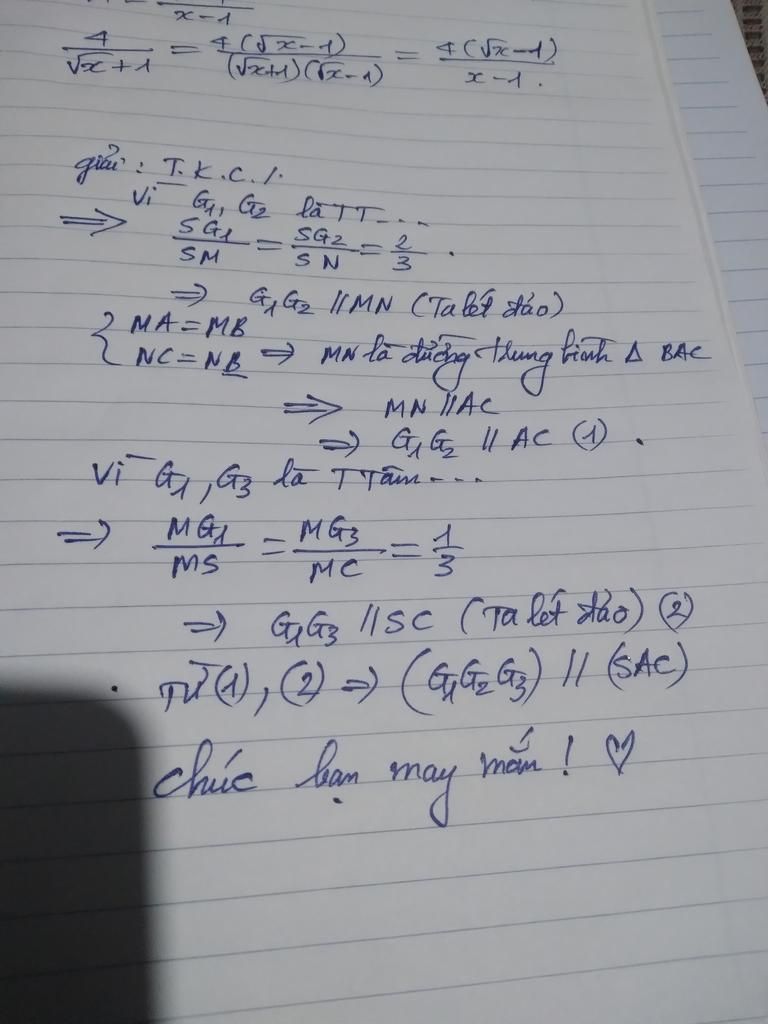 x-1
4/(√x+1) = 4(√x-1)/((√x+1)(√x-1)) = 4(√x-1)/(x-1).
giải: T.K.C.1.
Vì G1, G2 là TT...
=> SG1/SM = SG2/SN = 2/3.
=> G1G2 // MN (Ta lét đảo)
{ MA = MB
NC = NB => MN là đường trung bình Δ BAC
=> MN // AC
=> G1G2 // AC (1).
Vì G1, G3 là TTâm...
=> MG1/MS = MG3/MC = 1/3
=> G1G3 // SC (Ta lét đảo) (2)
. Từ (1), (2) => (G1G2G3) // (SAC)
chúc bạn may mắn! ♡